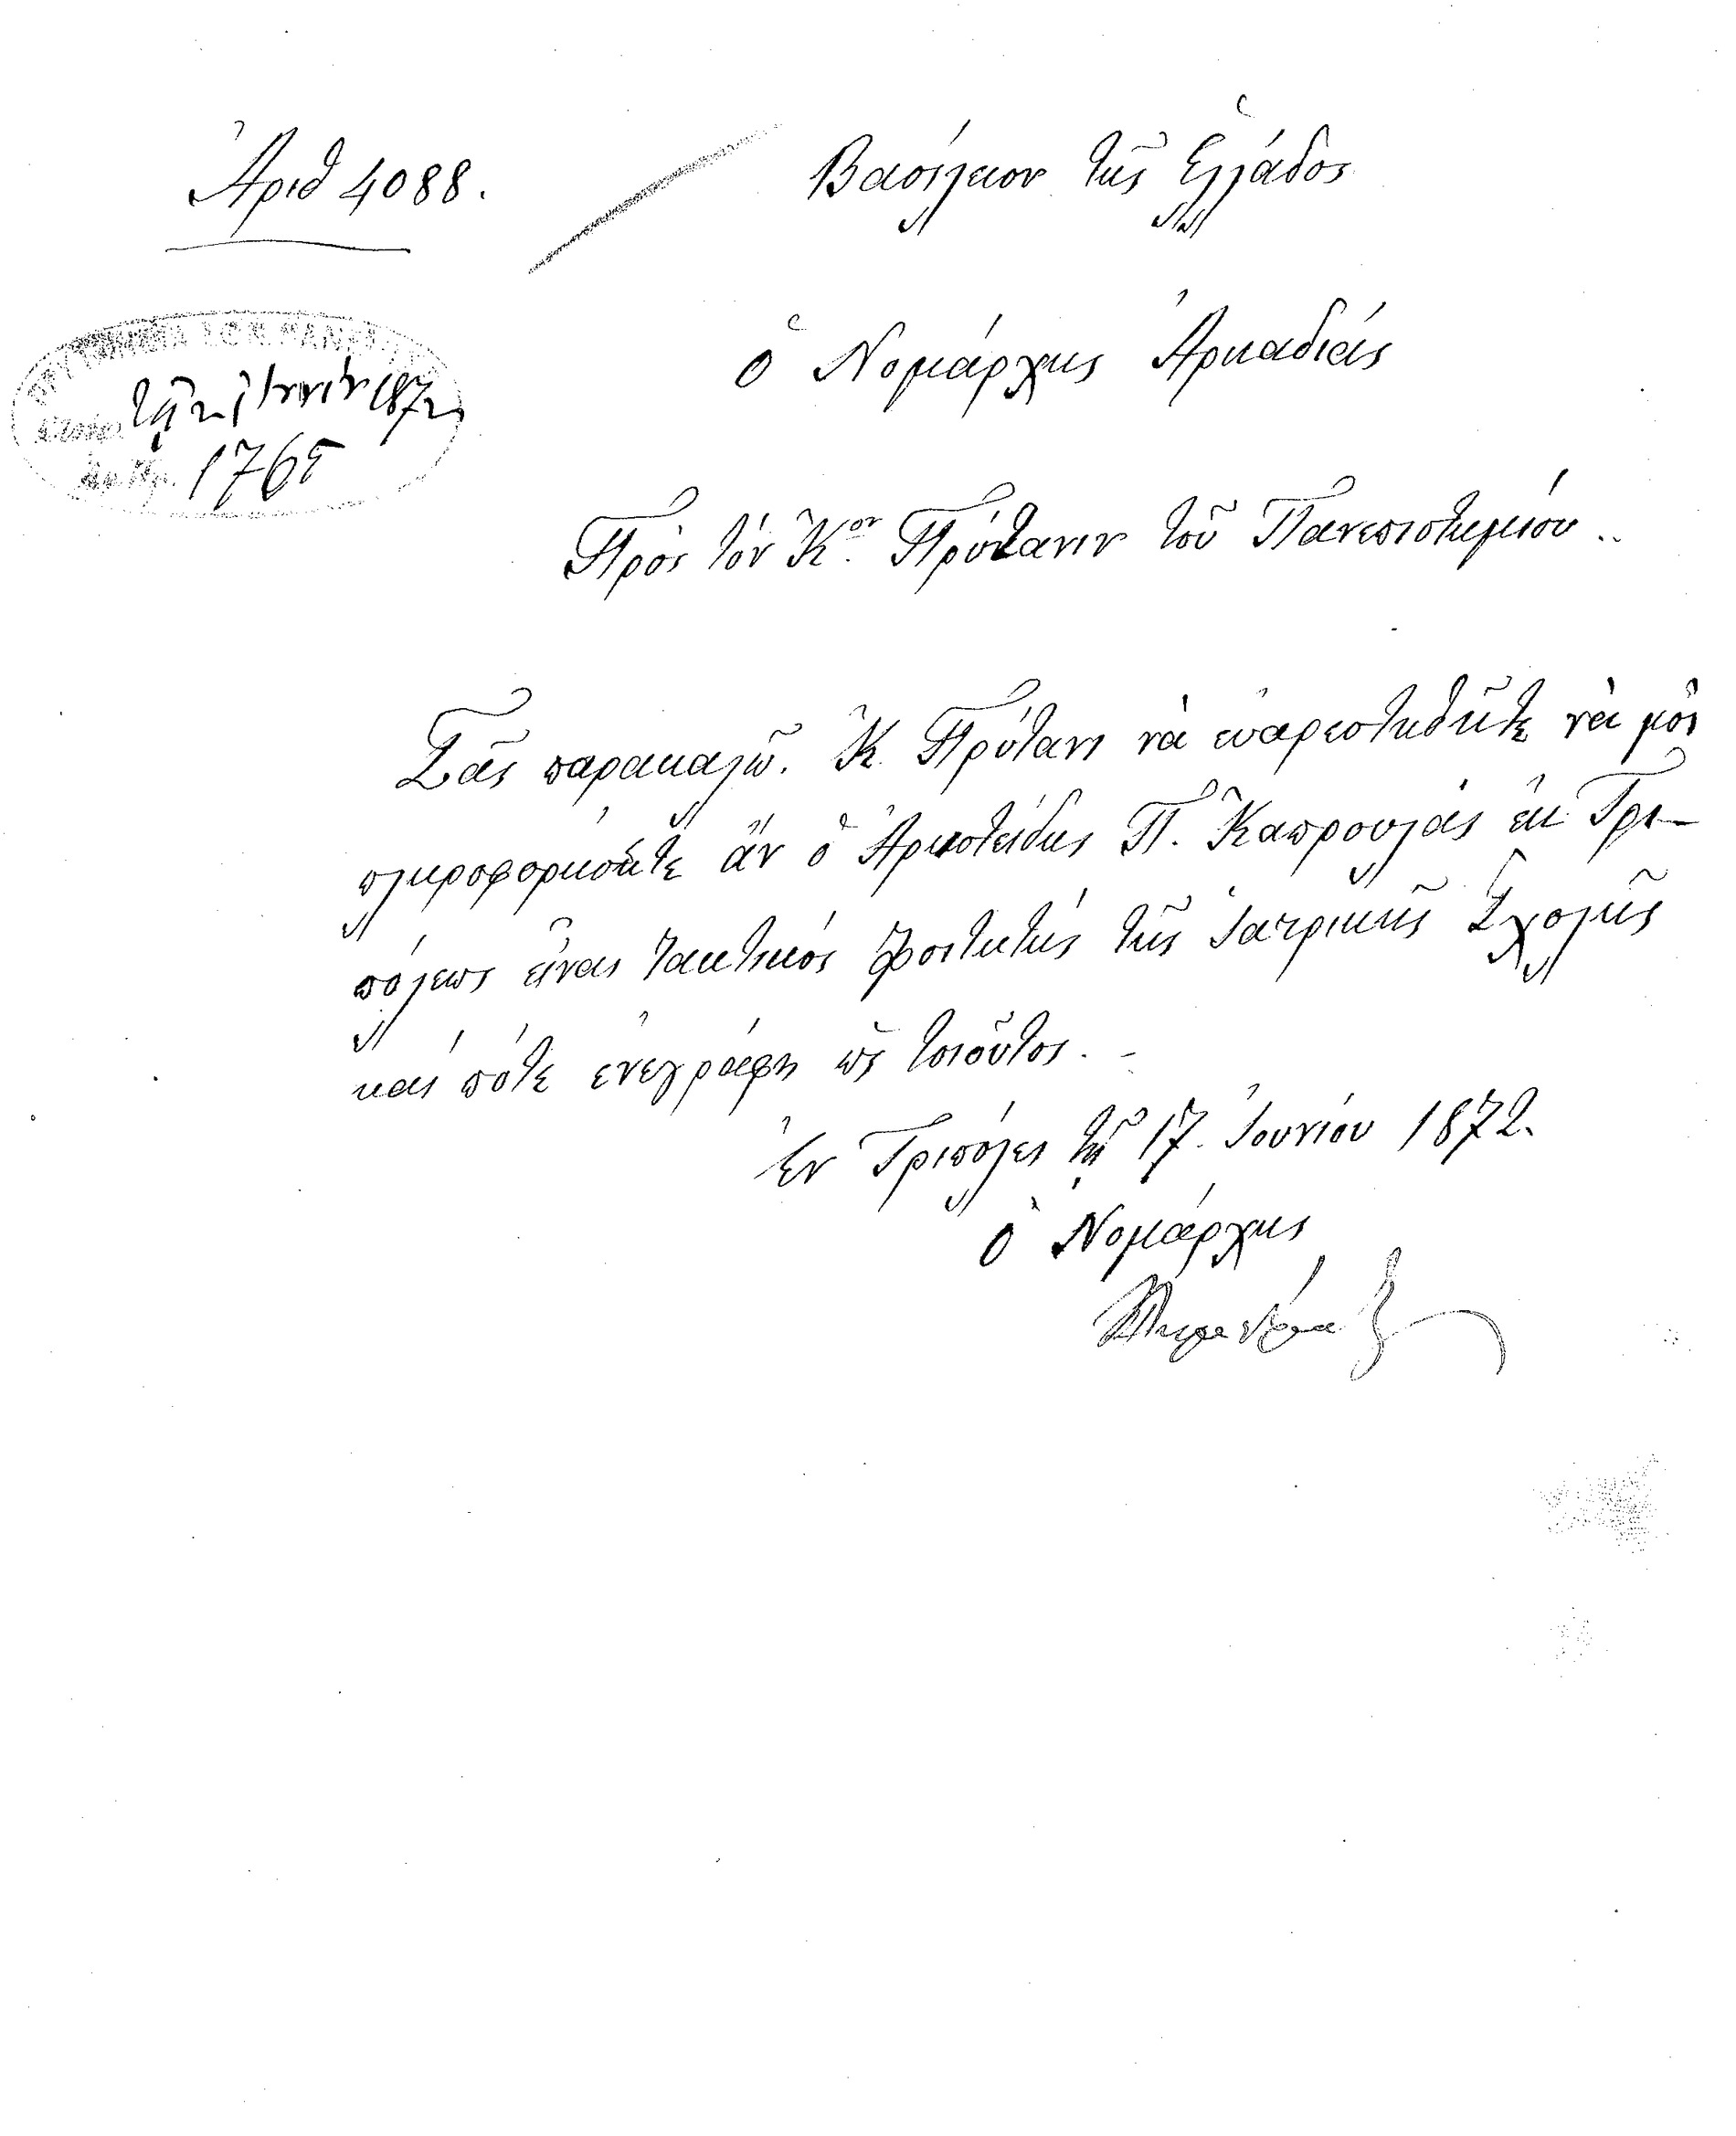 Ἀριθ 4088.
Βασίλειον τῆς Ἑλλάδος
Ὁ Νομάρχης Ἀρκαδίας
1872
1765
Πρὸς τὸν Κ.ον Πρύτανιν τοῦ Πανεπιστημίου..
Σᾶς παρακαλῶ. Κ. Πρύτανι νὰ εὐαρεστηθῆτε νὰ μοὶ
πληροφορήσητε ἂν ὁ Ἀριστείδης Π. Καπρουλάς ἐκ Τρι-
πόλεως εἶναι τακτικός φοιτητής τῆς Ἰατρικῆς Σχολῆς
καί πότε ἐνεγράφη ὡς τοιοῦτος. -
Ἐν Τριπόλει τῇ 17. Ἰουνίου 1872.
Ὁ Νομάρχης